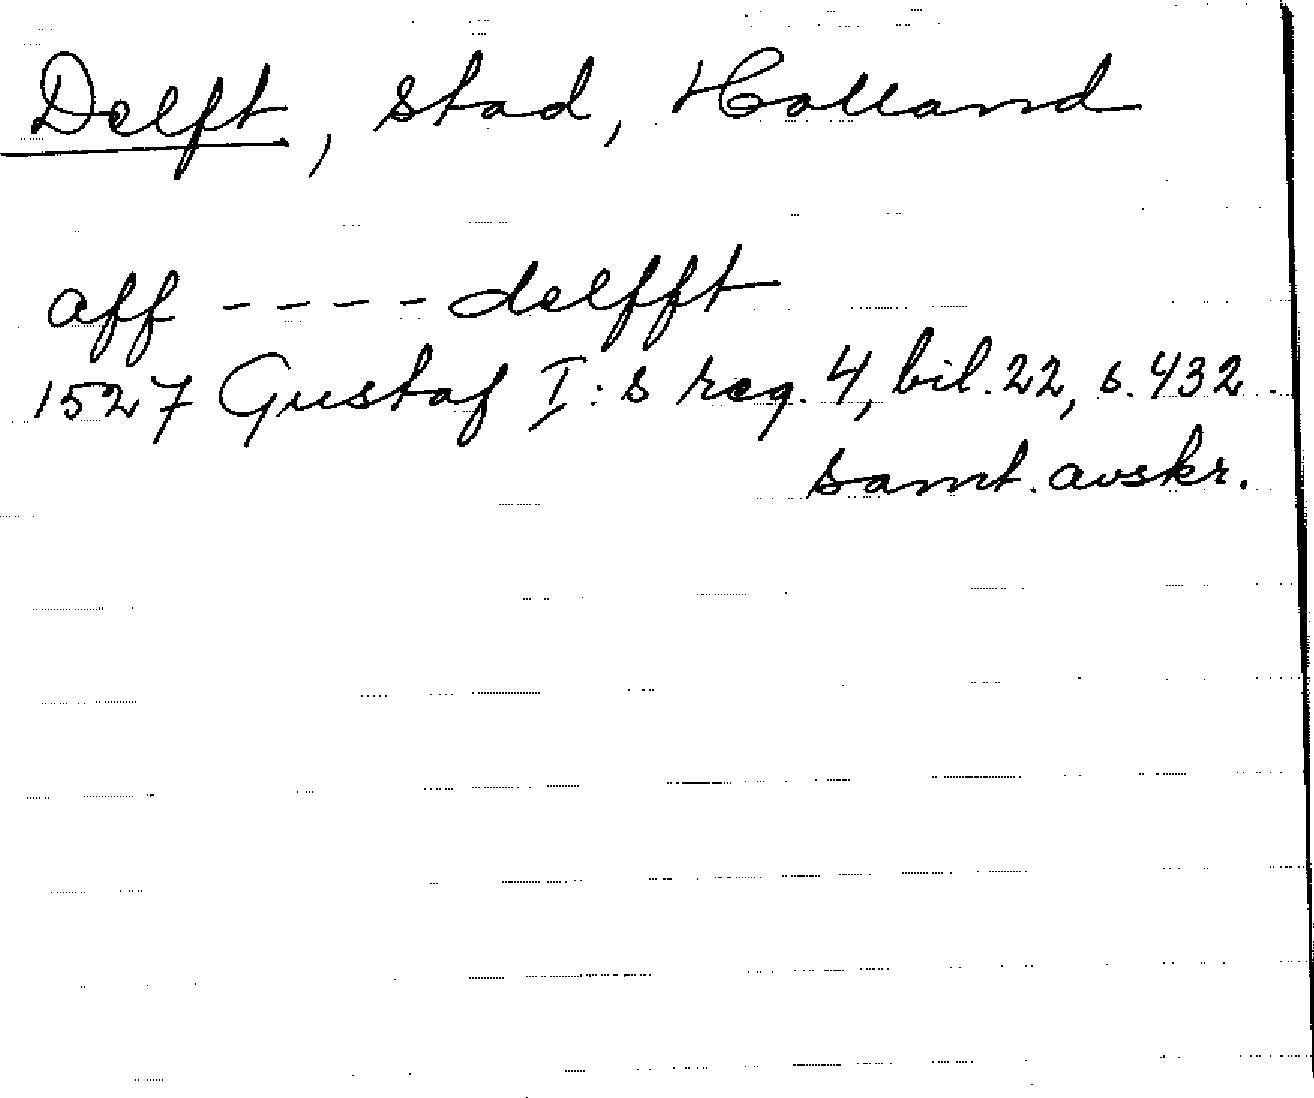 Delft, stad, Holland
aff - - - - delfft
1527 Gustaf I:s reg. 4, bil. 22, s. 432
samt. avskr.